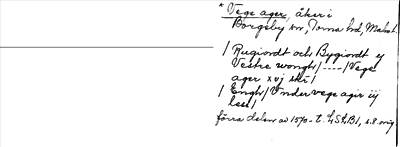 * Vege ager, åker i
Borgeby sn, Torna hd, Malmh.
/ Rugiordt och Bygiordt ej
Vestre wongh / ---- / Vege
ager x vj skr /
/ Engh / Vnder vege agir iij
less /
förra delen av 1570-t. LSt, B1, s. 8 orig